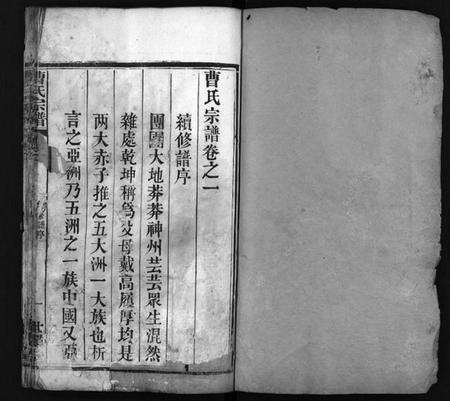 曹氏宗譜卷之一
續修譜序
團團大地莽莽神州芸芸眾生混然
雜處乾坤稱為父母戴高履厚均是
兩大赤子推之五大洲一大族也析
言之亞洲乃五洲之一族中國又亞
曹氏宗譜